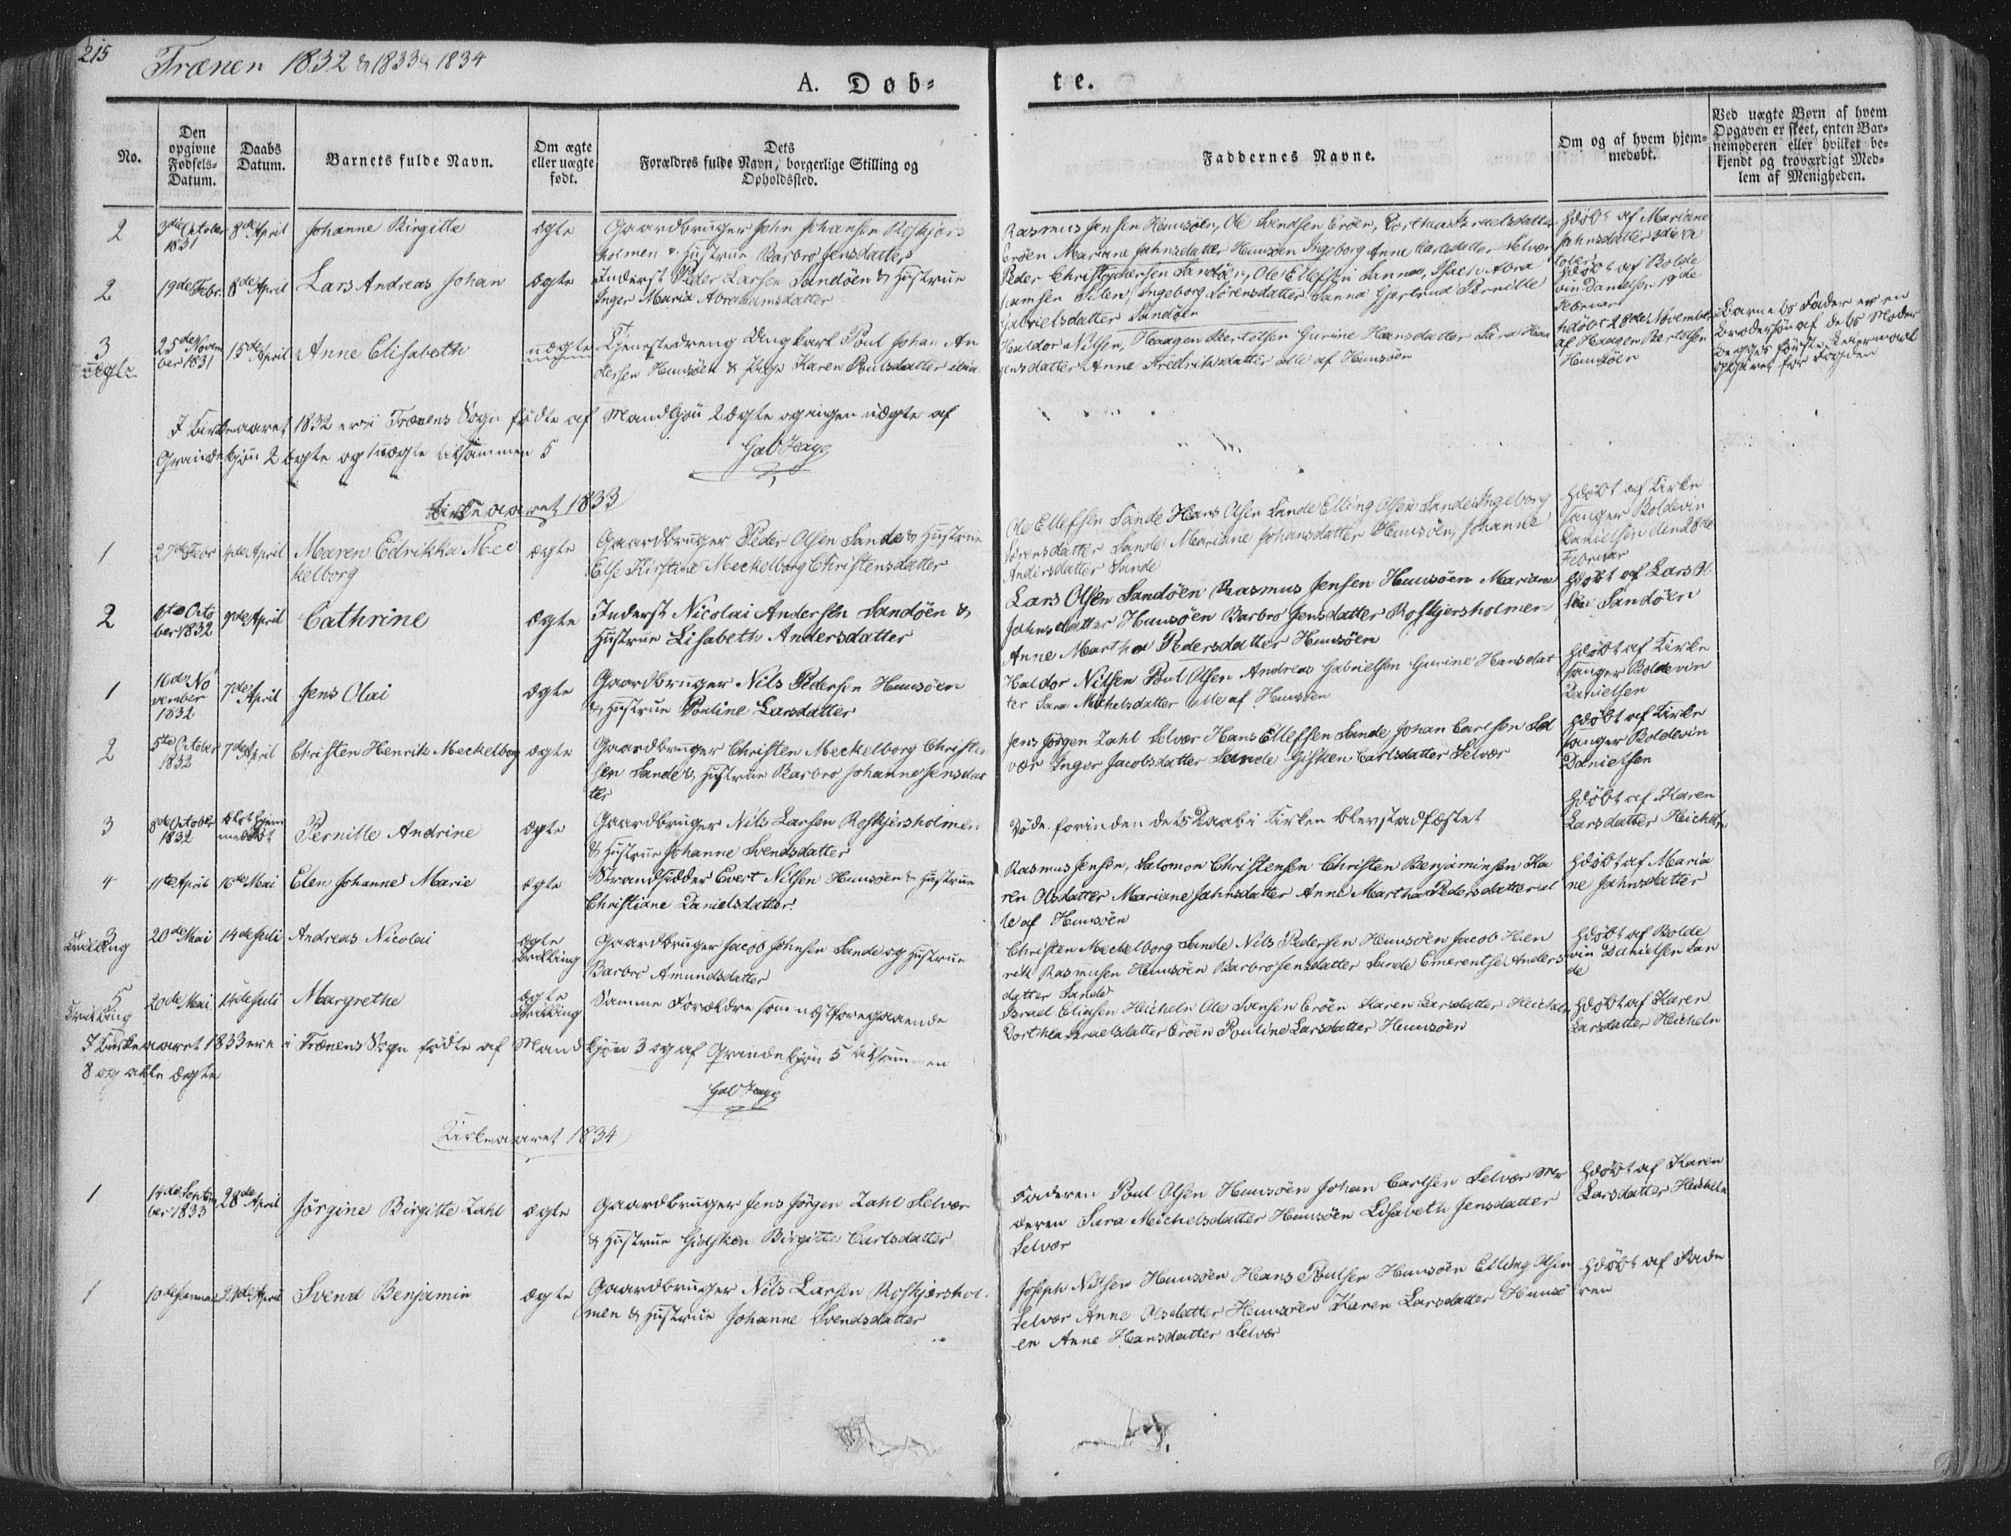 215
Trænen 1832 & 1833 & 1834
A. Døb-
te.
No.
Den opgivne Fødsels-Datum.
Daabs Datum.
Barnets fulde Navn.
Om ægte eller uægte født.
Dets Forældres fulde Navn, borgerlige Stilling og Opholdssted.
Faddernes Navne.
Om og af hvem hjem-medøbt.
Ved uægte Børn af hvem Opgaven er skeet, enten Bar-nemoderen eller hvilket be-kjendt og troværdigt Med-lem af Menigheden.
2
3die October 1831
8de April
Johanne Birgitte
ægte
Gaardbruger John Johansen Roskjærs
holmen & Hustrue Barbro Jensdatter
Rasmus Jensen Huusøen, Ole Svendsen Erøen, Dorthea Israelsdatter
Erøen Mariane Jahnsdatter Huusøen Ingeborg Anne Carlsdatter Selvær
Hdøbt af Mariane
Jahnsdatter 3die October
2
19de Febr.
8de April
Lars Andreas Johan
ægte
Inderst Peder Larsen Sandøen & Hustrue
Inger Maria Abrahamsdatter
Peder Christophersen Sandøen, Ole Ellefsen Sanna, Isac Abra
hamsen Ingeborg Sørensdatter Sanna Gjertrud Pernille
Gabrielsdatter Sandøen
Hdøbt af Bolde
vin Danielsen 19de
Februar
3
uægte
25de Novem
ber 1831
15de April
Anne Elisabeth
uægte
Tjenestedreng Ungkarl Poul Johan An
dersen Huusøen & Pige Karen Poulsdatter ibid
Haldor Nilsen, Haagen Bertelsen Gurine Hansdatter Sara Haa
gensdatter Anne Fredriksdatter alle af Huusøen
Hdøbt 28de November
af Haagen Bertelsen
Huusøen
Barnets Fader er en
Brodersøn af dets Moder
begges første Leiermaal
opgivet for Fogden
I Kirkeaaret 1832 ere i Trænens Sogn fødte af Mandkjøn 2 ægte og ingen uægte af
Qvindekjøn 2 ægte og 1 uægte tilsammen 5
Kirkeaaret 1833
1
27de Febr
4de April
Maren Edrikka Mec
kelborg
ægte
Gaardbruger Peder Olsen Sande & Hustrue
Else Kirstina Meckelborg Christensdatter
Ole Ellefsen Sande Hans Olsen Sande Elling Olsen Sande Ingeborg
Sørensdatter Sande Mariane Johansdatter Huusøen, Johanne
Andersdatter Sande
Hdøbt af Kirke
sanger Boldevin
Danielsen den 28de
Februar
2
6te Octo
ber 1832
9de April
Cathrine
ægte
Inderst Nicolai Andersen Sandøen &
Hustrue Lisabeth Andersdatter
Lars Olsen Sandøen Rasmus Jensen Huusøen Mariane
Jahnsdatter Huusøen Barbro Jensdatter Roskjersholmen
Anne Martha Pedersdatter Huusøen
Hdøbt af Lars Ol
sen Sandøen
1
16de No
vember
1832
7de April
Jens Olai
ægte
Gaardbruger Nils Pedersen Huusøen
& Hustrue Pouline Larsdatter
Haldor Nilsen Poul Olsen Andreas Gabrielsen Gurine Hansdat
ter Sara Michelsdatter alle af Huusøen
Hdøbt af Kirke
sanger Boldevin
Danielsen
2
5te October
1832
7de April
Christen Henrik Meckelborg
ægte
Gaardbruger Christen Meckelborg Christen
sen Sande & Hustrue Barbro Johanne Jensdat
ter
Jens Jørgen Zahl Selvær Hans Ellefsen Sande Johan Carlsen Sel
vær Inger Jacobsdatter Sande Gisken Carlsdatter Selvær
Hdøbt af Kirke
sanger Boldevin
Danielsen
3
8de October
1832
Blot hjem
medøbt
Pernille Andrine
ægte
Gaardbruger Nils Larsen Roskjersholmen
& Hustrue Johanne Svendsdatter
Døde forinden dets Daab i Kirken blev stadfæstet
Hdøbt af Karen
Larsdatter Heicheln
4
11te April
16de Mai
Elen Johanne Marie
ægte
Strandsidder Evert Nilsen Huusøen & Hustrue
Christiane Danielsdatter
Rasmus Jensen, Salomon Christensen Christen Benjaminsen Ka
ren Olsdatter Mariane Jahnsdatter Anne Martha Pedersdatter al
le af Huusøen
Hdøbt af Maria
ne Jahnsdatter
3
Tvilling
20de Mai
14de Juli
Andreas Nicolai
ægte
Tvilling
Gaardbruger Jacob Johnsen Sande og Hustrue
Barbro Amundsdatter
Christen Meckelborg Sande Nils Pedersen Huusøen Jacob Hen
rik Rasmusen Huusøen Barbro Jensdatter Sande Emerentse Anders
datter Sande
Hdøbt af Bolde
vin Danielsen San
de
5
Tvilling
20de Mai
14de Juli
Margrethe
ægte
Tvilling
Samme Forældre som næstforegaaende
Israel Eliasen Heicheln Ole Svensen Erøen Karen Larsdatter Heicheln
Dorthea Israelsdatter Erøen Pouline Larsdatter Huusøen
Hdøbt af Karen
Larsdatter Heicheln
I Kirkeaaret 1833 ere i Trænens Sogn fødte af Mandkjøn 3 og af Qvindekjøn 5 tilsammen
8 og alle ægte
Kirkeaaret 1834
1
14de Septem
ber 1833
28de April
Jørgine Birgitte Zahl
ægte
Gaardbruger Jens Jørgen Zahl Selvær
& Hustrue Gidsken Birgitte Carlsdatter
Faderen Poul Olsen Huusøen Johan Carlsen Selvær Mo
deren Sara Michelsdatter Huusøen Lisabeth Jensdatter
Selvær
Hdøbt af Karen
Larsdatter Heicheln
1
10de Januar
29de April
Svend Benjamin
ægte
Gaardbruger Nils Larsen Roskjærshol-
men & Hustrue Johanne Svendsdatter
Joseph Nilsen Huusøen Hans Poulsen Huusøen Elling Olsen
Selvær Anne Olsdatter Huusøen Karen Larsdatter Huusø
en Anne Hansdatter Selvær
Hdøbt af Fade
ren